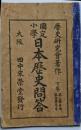 歴史研究會著作
國定
小學
日本歴史問答
大阪
田中宋榮堂發行